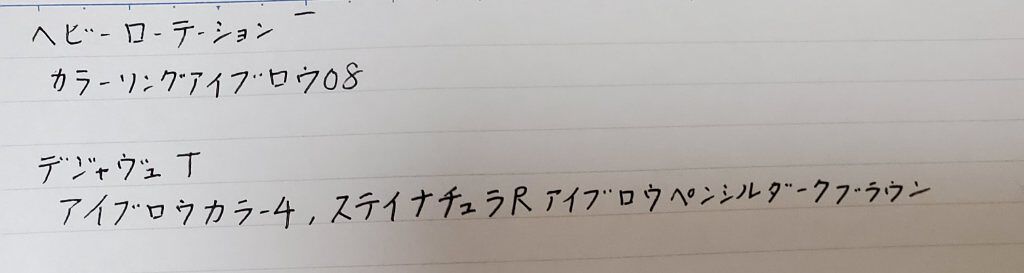 ヘビーローテーション
カラーリングアイブロウ08
デジャヴュ T
アイブロウカラー4,ステイナチュラRアイブロウペンシルダークブラウン